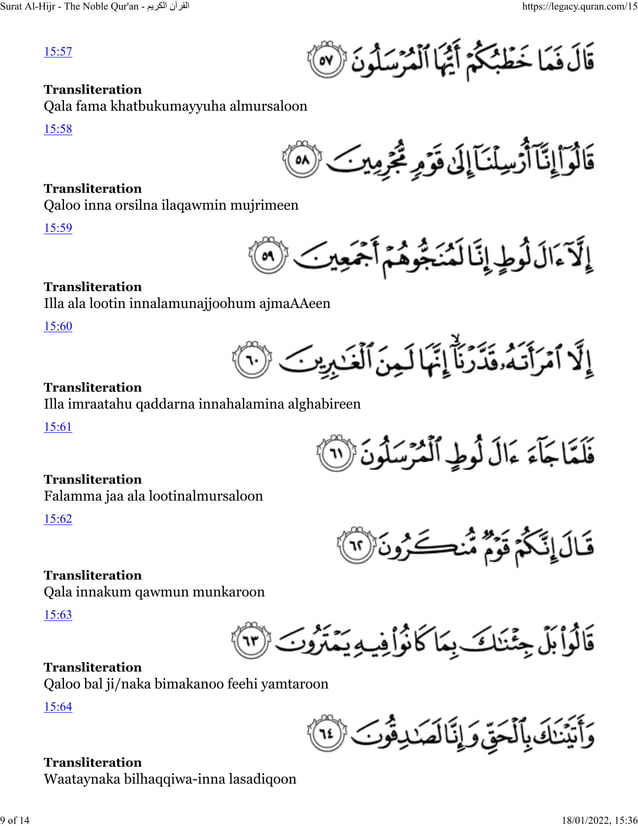 Surat Al-Hijr - The Noble Qur'an - القرآن الكريم
https://legacy.quran.com/15
15:57
قَالَ فَمَا خَطْبُكُمْ أَيُّهَا ٱلْمُرْسَلُونَ ٥٧
Transliteration
Qala fama khatbukumayyuha almursaloon
15:58
قَالُوٓا۟ إِنَّآ أُرْسِلْنَآ إِلَىٰ قَوْمٍ مُّجْرِمِينَ ٥٨
Transliteration
Qaloo inna orsilna ilaqawmin mujrimeen
15:59
إِلَّآ ءَالَ لُوطٍ إِنَّا لَمُنَجُّوهُمْ أَجْمَعِينَ ٥٩
Transliteration
Illa ala lootin innalamunajjoohum ajmaAAeen
15:60
إِلَّا ٱمْرَأَتَهُۥ قَدَّرْنَآ ۙ إِنَّهَا لَمِنَ ٱلْغَٰبِرِينَ ٦٠
Transliteration
Illa imraatahu qaddarna innahalamina alghabireen
15:61
فَلَمَّا جَآءَ ءَالَ لُوطٍ ٱلْمُرْسَلُونَ ٦١
Transliteration
Falamma jaa ala lootinalmursaloon
15:62
قَالَ إِنَّكُمْ قَوْمٌ مُّنكَرُونَ ٦٢
Transliteration
Qala innakum qawmun munkaroon
15:63
قَالُوا۟ بَلْ جِئْنَٰكَ بِمَا كَانُوا۟ فِيهِ يَمْتَرُونَ ٦٣
Transliteration
Qaloo bal ji/naka bimakanoo feehi yamtaroon
15:64
وَأَتَيْنَٰكَ بِٱلْحَقِّ وَإِنَّا لَصَٰدِقُونَ ٦٤
Transliteration
Waataynaka bilhaqqiwa-inna lasadiqoon
9 of 14
18/01/2022, 15:36